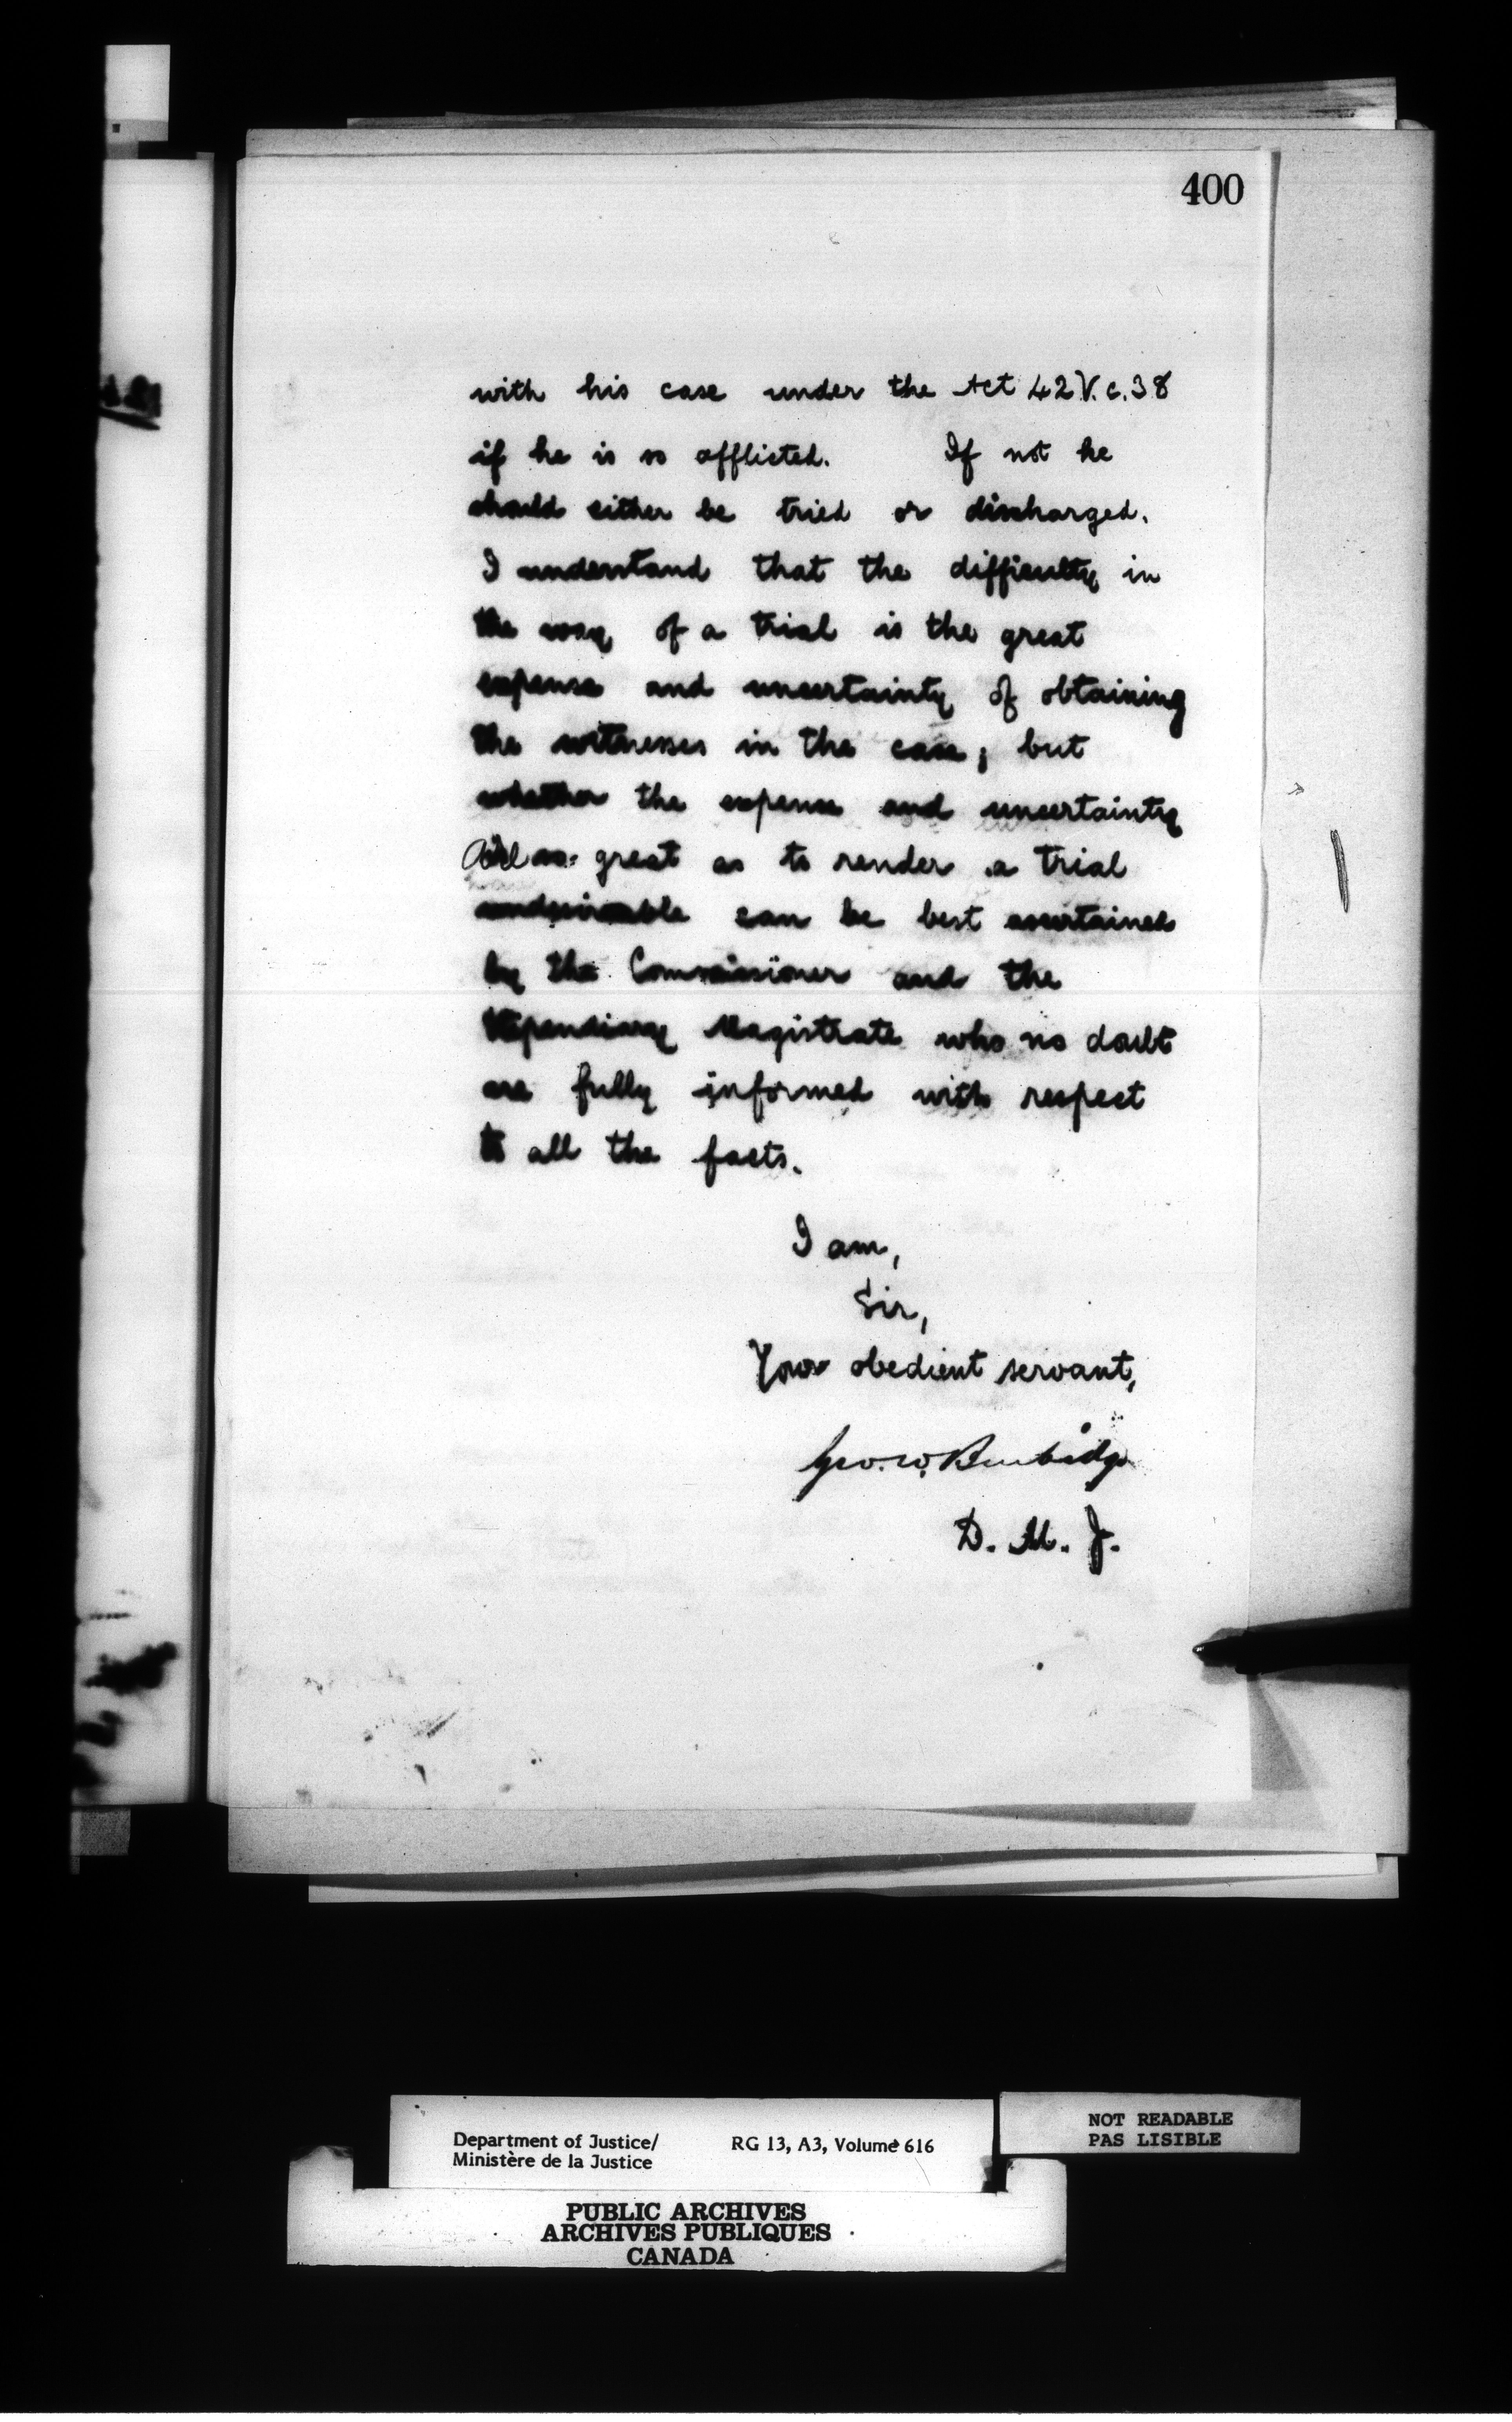 400
with his case under the Act 42 V. c. 38
if he is so afflicted. If not he
should either be tried or discharged.
I understand that the difficulty in
the way of a trial is the great
expense and uncertainty of obtaining
the witnesses in the case; but
whether the expense and uncertainty
so great as to render a trial
undesirable can be best ascertained
by the Commissioner and the
Stipendiary Magistrate who no doubt
are fully informed with respect
to all the facts.
I am,
Sir,
Your obedient servant,
Geo. W. Burbidge
D. M. J.
Department of Justice/ RG 13, A3, Volume 616
Ministère de la Justice
NOT READABLE
PAS LISIBLE
PUBLIC ARCHIVES
ARCHIVES PUBLIQUES
CANADA